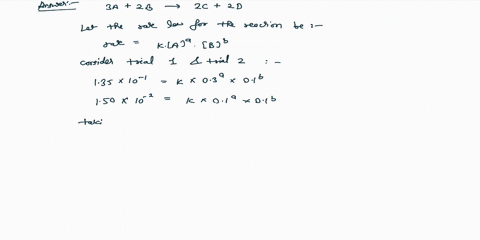 Answer:- 3A + 2B → 2C + 2D
Let the rate law for the reaction be :-
rate = K.[A]ᵃ. [B]ᵇ
Consider trial 1 & trial 2 :-
1.35 × 10⁻¹ = K × 0.3ᵃ × 0.1ᵇ
1.50 × 10⁻² = K × 0.1ᵃ × 0.1ᵇ
taki